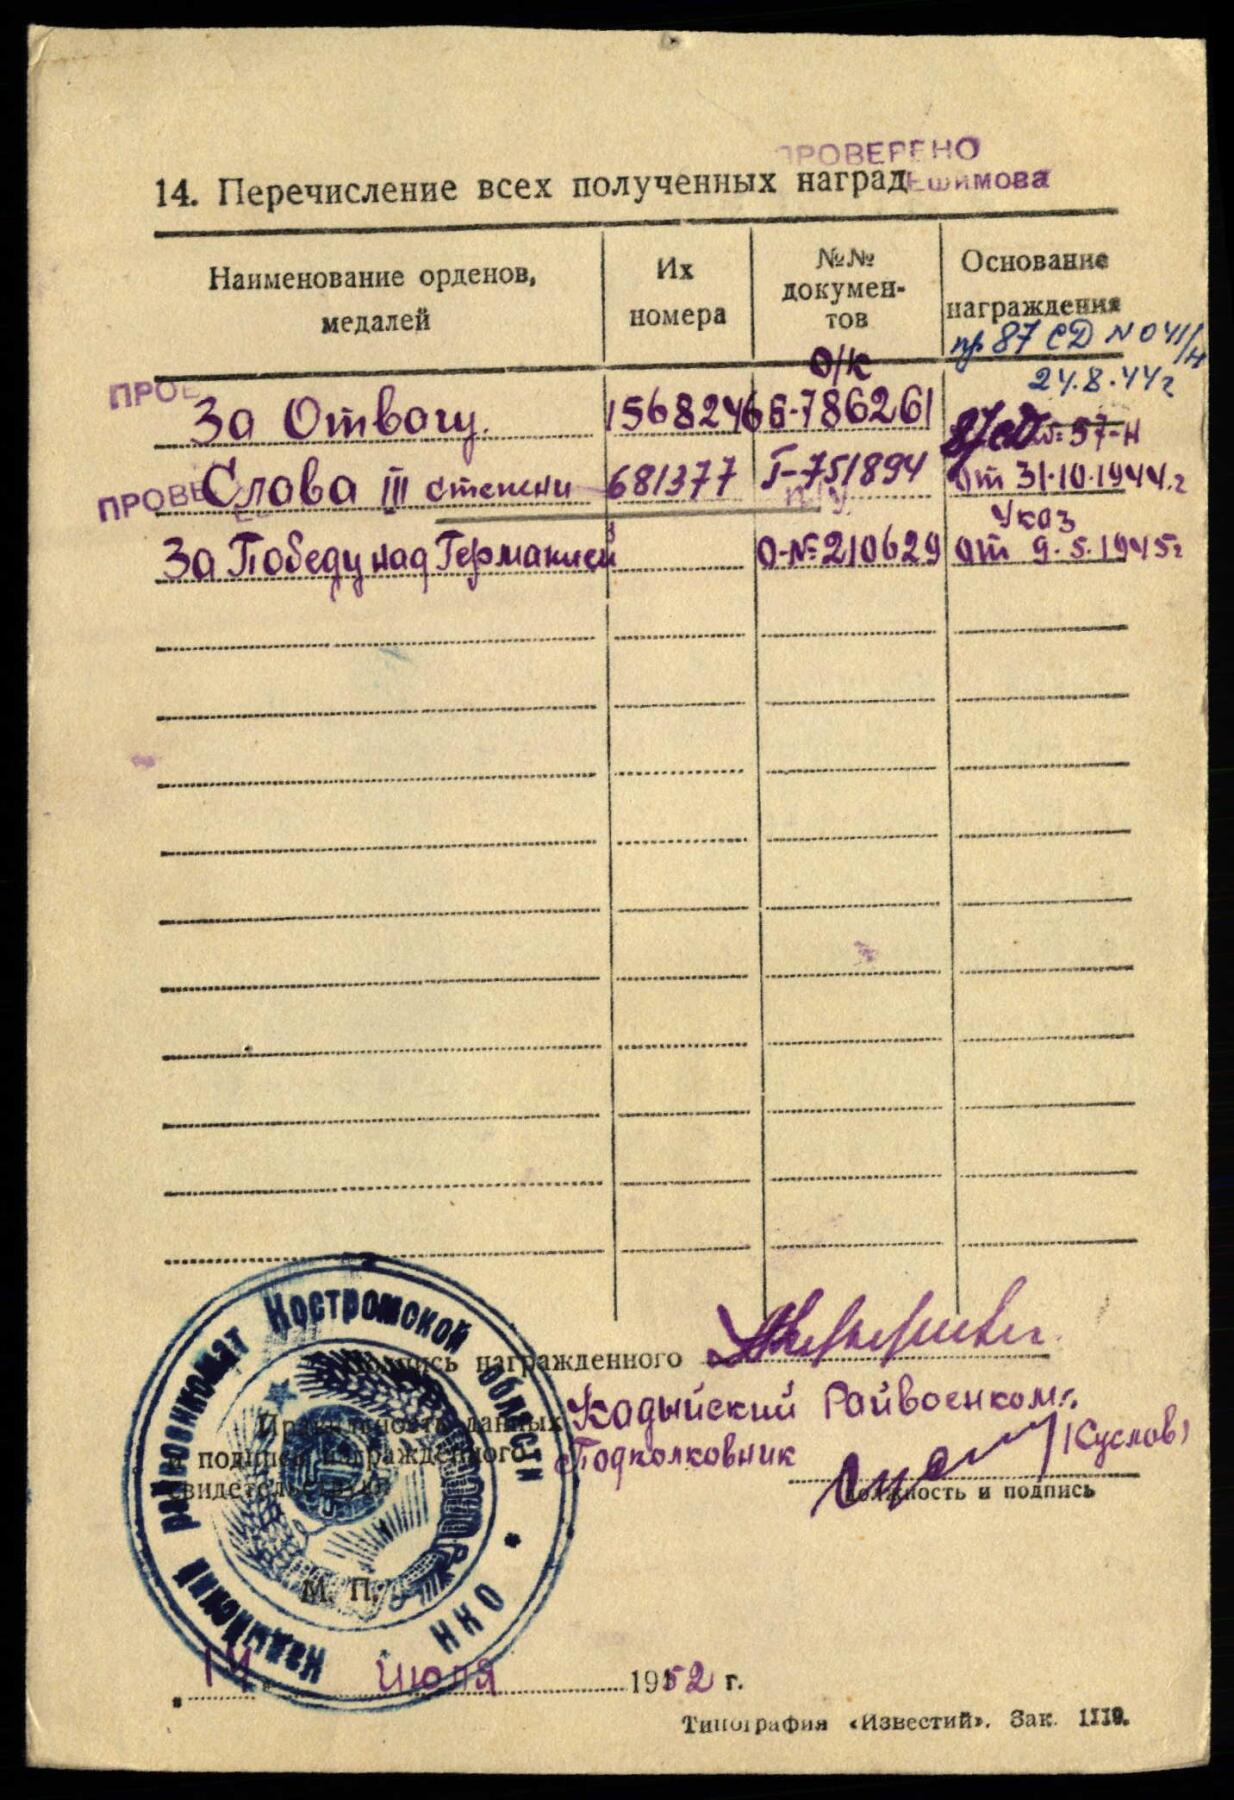 ПРОВЕРЕНО
14. Перечисление всех полученных наград
ешимова
Наименование орденов, медалей
Их номера
№№ документов
Основание награждения
пр. 87 СД N 041/н
24.8.44г
О/к
ПРОВ
За Отвагу.
1568246
Б-786261
87 сд № 57-н
ПРОВЕ
Слава III степени
681377
Г-751894
От 31.10.1944.г
За Победу над Германией
О-№210629
Указ
от 9.5.1945г
Подпись награжденного
Кадыйский Райвоенком:
Правильность данных
и подписи награжденного
свидетельствую:
Подполковник
(Суслов)
должность и подпись
М. П.
Кадыйский райвоенкомат Костромской области * ОНН
14 июля 1952 г.
Типография «Известий». Зак. 1119.